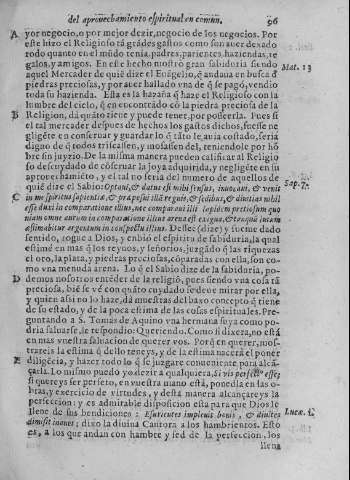 del aprovechamiento espiritual en comun. 96
A yor negocio, o por mejor dezir, negocio de los negocios. Por
este hizo el Religioso tã grãdes gastos como son auer dexado
todo quanto en el mũdo tenia, padres, parientes, haziendas, re
galos, y amigos. En este hecho mostró gran sabiduria siendo
aquel Mercader de quiē dize el Euãgelio, q̃ andaua en busca d̃ Mat. 13
piedras preciosas, y por auer hallado vna de q̃ se pagó, vendio
toda su hazienda. Esta es la hazaña q̃ haze el Religioso con la
lumbre del cielo, q̃ en encontrãdo cõ la piedra preciosa de la
B Religion, dá quãto tiene y puede tener, por posseerla. Pues si
el tal mercader despues de hechos los gastos dichos, fuesse ne
gligēte en conseruar y guardar lo q̃ tãto le auia costado, seria
digno de q̃ todos riessen, y mofassen del, teniendole por hõ
bre sin juyzio. De la misma manera pueden calificar al Religio
so descuydado de cõseruar la joya adquirida, y negligēte en su
aprouechamiēto, y el tal no seria del numero de aquellos de
quiē dize el Sabio: Optaui, & datus est mihi sensus, inuocaui, & venit Sap. 7.
C in me spiritus sapientiæ, & præposui illã regnis, & sedibus, & diuitias nihil
esse duxi in comparatione illius, nec comparaui illi lapidem pretiosum quo
niam omne aurum in comparatione illius arena est exigua, & tanquã lutum
æstimabitur argentum in conspectu illius. Dessee (dize) y fueme dado
sentido, rogue a Dios, y embiò el espiritu de sabiduria, la qual
estime en mas q̃ los reynos, y señorios, juzgãdo q̃ las riquezas
el oro, la plata, y piedras preciosas, cõparadas con ella, son co
mo vna menuda arena. Lo q̃ el Sabio dize de la sabiduria, po-
D demos nosotros entēder de la religiõ, pues siendo vna cosa tã
preciosa, biē se vê con quãto cuydado se deue mirar por ella,
y quien assi no lo haze, dá muestras del baxo concepto q̃ tiene
de su estado, y de la poca estima de las cosas espirituales. Pre-
guntando a S. Tomas de Aquino vna hermana suya como po-
dria saluarse, le respondio: Queriendo. Como si dixera, no está
en mas vuestra saluacion de querer vos. Porq̃ en querer, mos-
trareis la estima q̃ dello teneys, y de la estima nacerá el poner
E diligēcia, y hazer todo lo q̃ se juzgare conueniente para alcã-
çarla. Lo mismo puedo yo dezir a qualquiera, Si vis perfectus esse;
si quereys ser perfeto, en vuestra mano está, ponedla en las o-
bras, y exercicio de virtudes, y desta manera alcançareys la
perfeccion: y es admirable disposicion esta para que Dios le
llene de sus bendiciones: Esurientes impleuit bonis, & diuites Lucæ. 1.
dimisit inanes; dixo la diuina Cantora a los hambrientos. Esto
es, a los que andan con hambre y sed de la perfeccion, los
llena